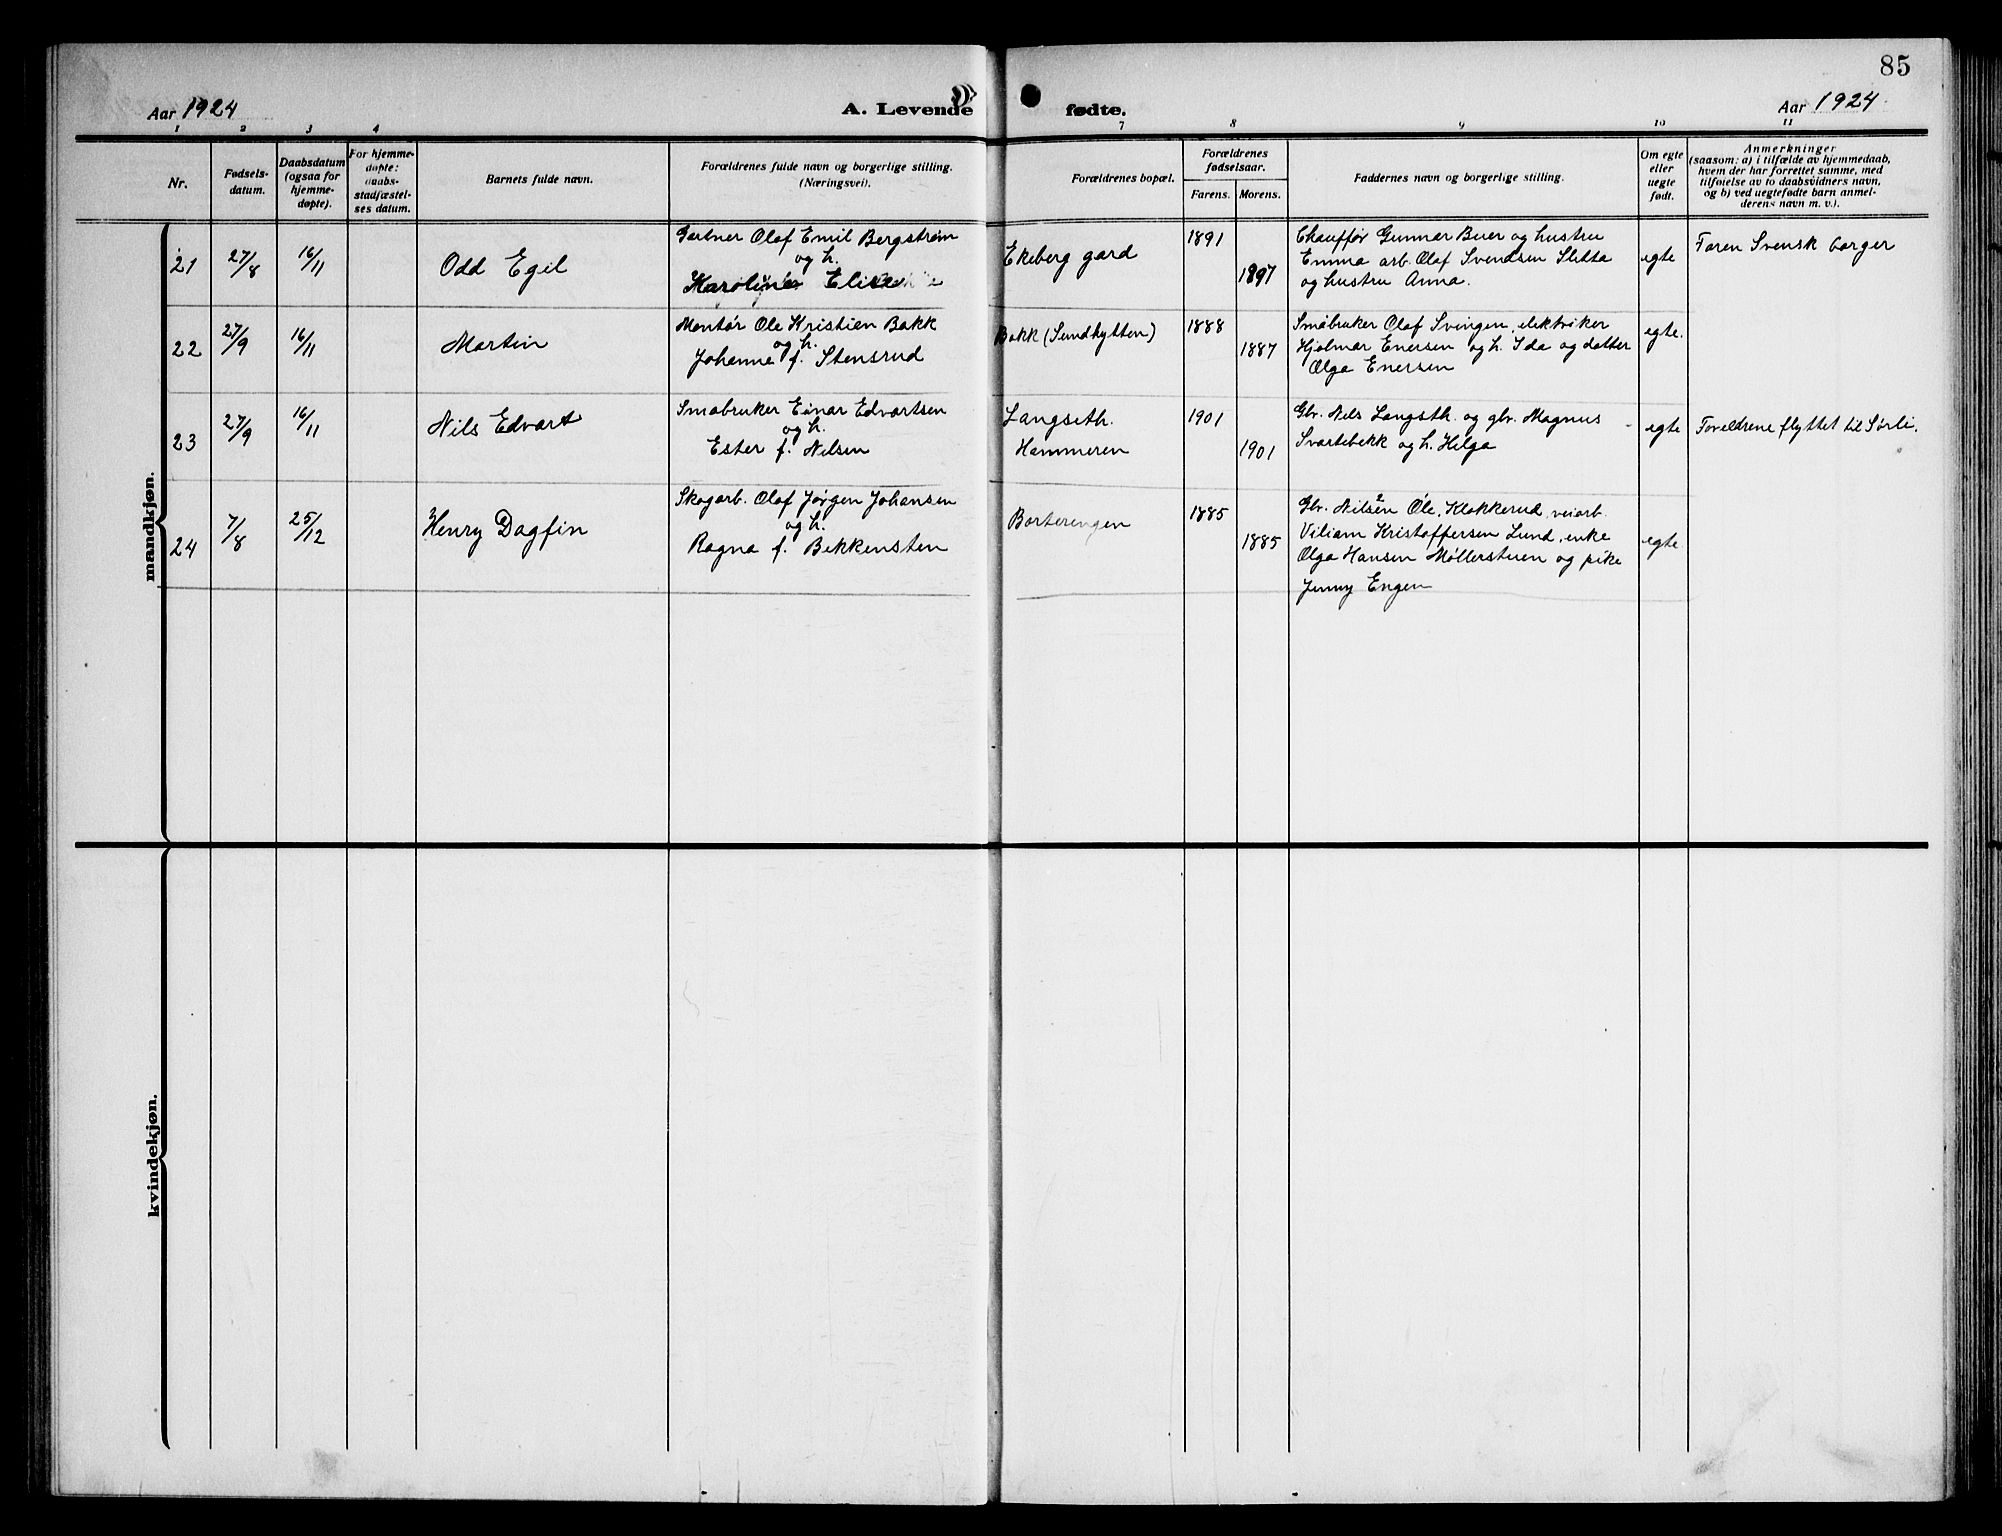 85
Aar 1924
A. Levende
fødte.
Aar 1924
1 2 3 4
7 8 9 10 11
Nr.
Fødsels-
datum.
Daabsdatum
(ogsaa for
hjemme-
døpte).
For hjemme-
døpte:
daabs-
stadfæstel-
ses datum.
Barnets fulde navn.
Forældrenes fulde navn og borgerlige stilling.
(Næringsvei).
Forældrenes bopæl.
Forældrenes
fødselsaar.
Farens. Morens.
Faddernes navn og borgerlige stilling.
Om egte
eller
uegte
født.
Anmerkninger
(saasom: a) i tilfælde av hjemmedaab,
hvem der har forrettet samme, med
tilføielse av to daabsvidners navn,
og b) ved uegtefødte barn anmel-
derens navn m. v.).
mandkjøn.
21
27/8
16/11
Odd Egil
Gartner Olaf Emil Bergstrøm
og h.
Elise
Ekeberg gard
1891
1897
Chauffør Gunnar Buer og hustru
Emma arb. Olaf Svendsen Slitta
og hustru Anna.
egte
Faren Svensk borger
22
27/9
16/11
Martin
Montør Ole Kristian Bakk
og h.
Johanne f. Stensrud
Bakk (Sundhytten)
1888
1887
Småbruker Olaf Svingen, elektriker
Hjalmar Enersen og h. Ida og datter
Olga Enersen
egte.
23
27/9
16/11
Nils Edvart
Småbruker Einar Edvartsen
og h.
Ester f. Nilsen
Langseth.
Hammeren
1901
1901
Gbr. Nils Langseth. og gbr. Magnus
Svartebekk og h. Helga
egte
Foreldrene flyttet til Sørli.
24
7/8
25/12
Henry Dagfin
Skogarb. Olaf Jørgen Johansen
og h.
Ragna f. Bekkensten
Borterengen
1885
1885
Gbr. Nilsen 2 Ole, Klokkerud, veiarb.
Viliam Kristoffersen Lund, enke
Olga Hansen Møllerstuen og pike
Jenny Engen
egte
kvindekjøn.